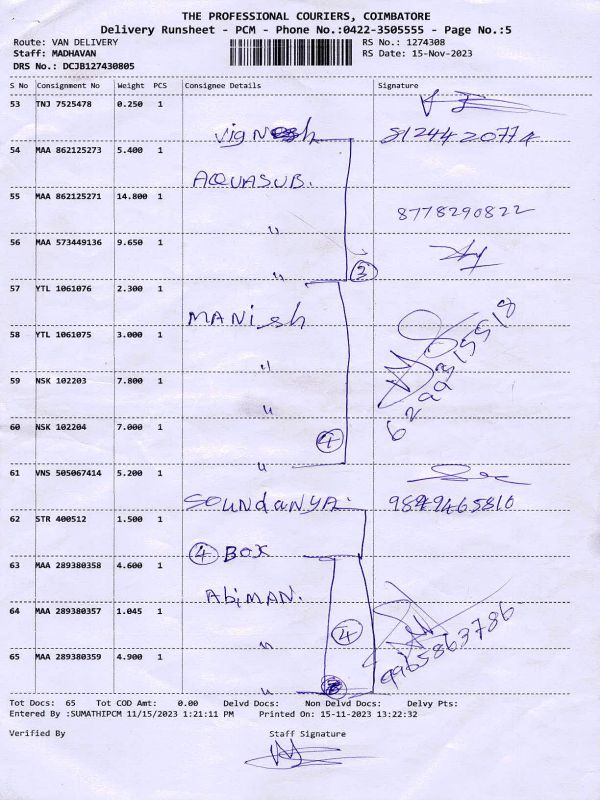 THE PROFESSIONAL COURIERS, COIMBATORE
Delivery Runsheet - PCM - Phone No.:0422-3505555 - Page No.:5
Route: VAN DELIVERY RS No.: 1274308
Staff: MADHAVAN RS Date: 15-Nov-2023
DRS No.: DCJB127430805
S No Consignment No Weight PCS Consignee Details Signature
53 TNJ 7525478 0.250 1
Vignesh 81244 20774
54 MAA 862125273 5.400 1
AQUASUB.
55 MAA 862125271 14.800 1
" 8778290822
56 MAA 573449136 9.650 1
" 3
57 YTL 1061076 2.300 1
MANish
58 YTL 1061075 3.000 1
"
59 NSK 102203 7.800 1
"
60 NSK 102204 7.000 1
" 4
61 VNS 505067414 5.200 1
SOUNDANYA.
62 STR 400512 1.500 1
4 BOX
63 MAA 289380358 4.600 1
AbiMAN.
64 MAA 289380357 1.045 1
" 4
9965863786
65 MAA 289380359 4.900 1
"
Tot Docs: 65 Tot COD Amt: 0.00 Delvd Docs: Non Delvd Docs: Delvy Pts:
Entered By :SUMATHIPCM 11/15/2023 1:21:11 PM Printed On: 15-11-2023 13:22:32
Verified By Staff Signature